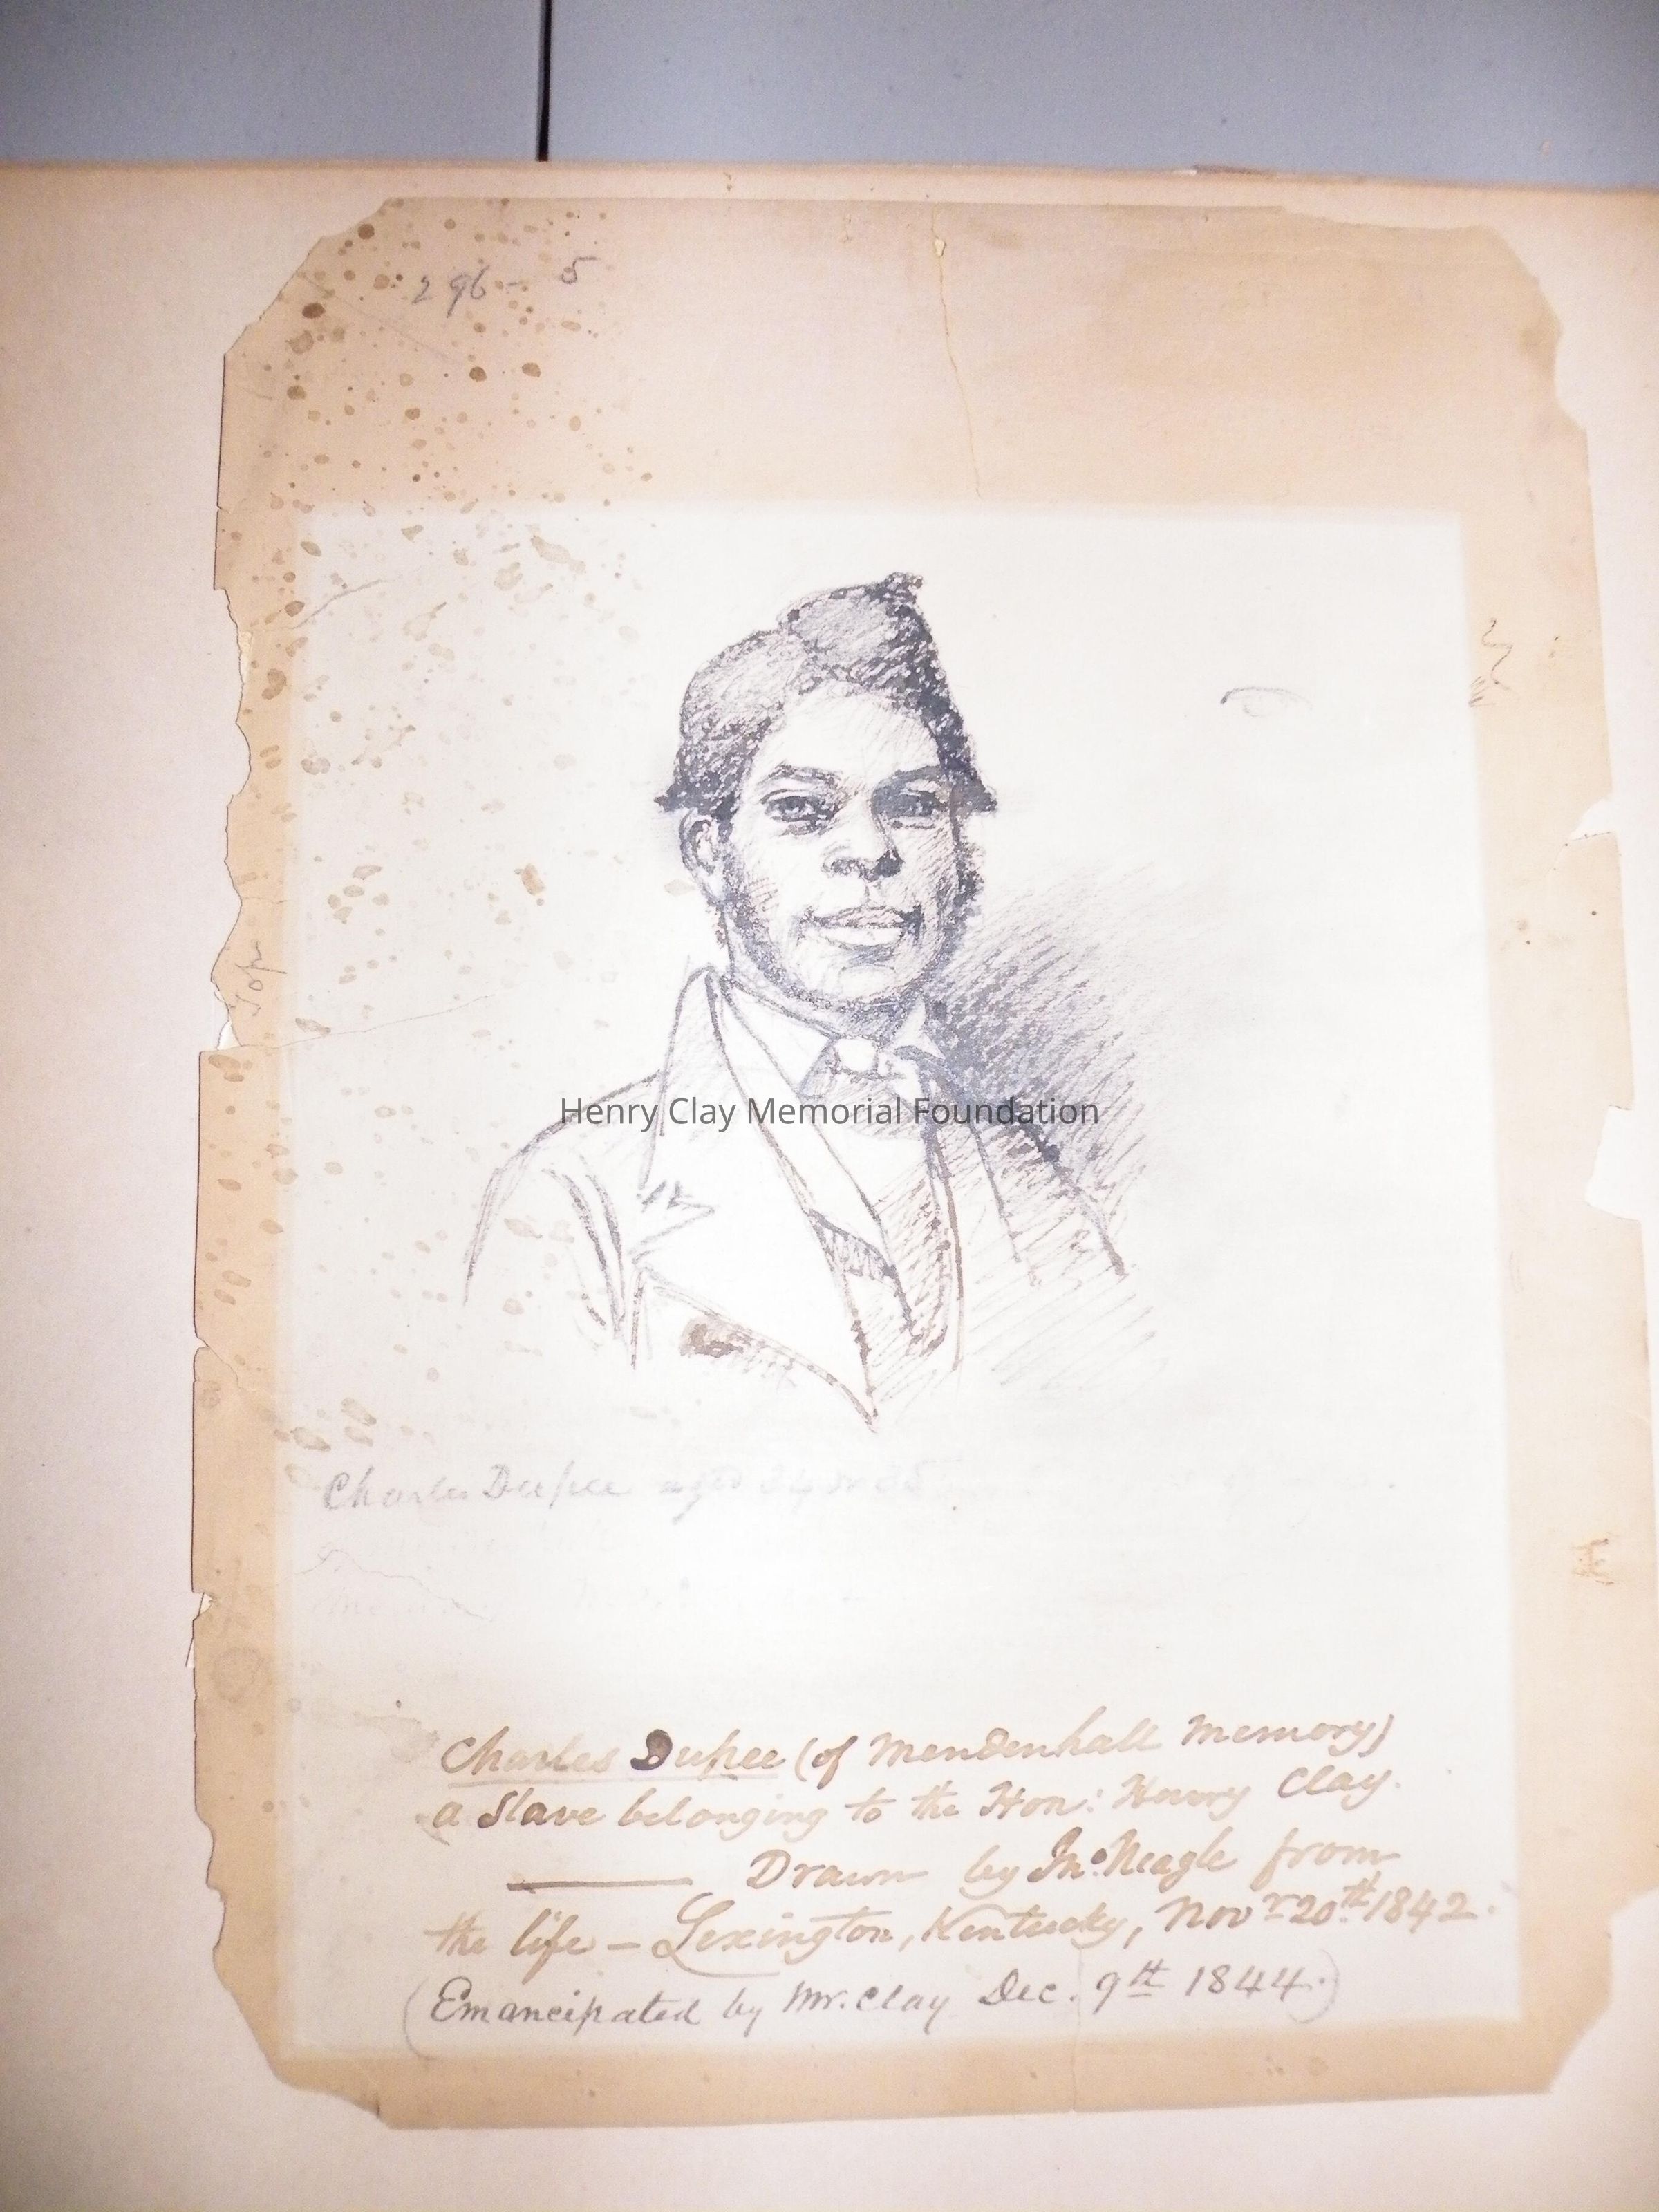 296 - 5
Top
Henry Clay Memorial Foundation
Charles Dupee aged 34 or 35
Charles Dupee (of Mendenhall Memory)
a Slave belonging to the Hon: Henry Clay.
Drawn by Jno. Neagle from
the life – Lexington, Kentucky, Novr 20th 1842.
(Emancipated by Mr. Clay Dec. 9th 1844.)